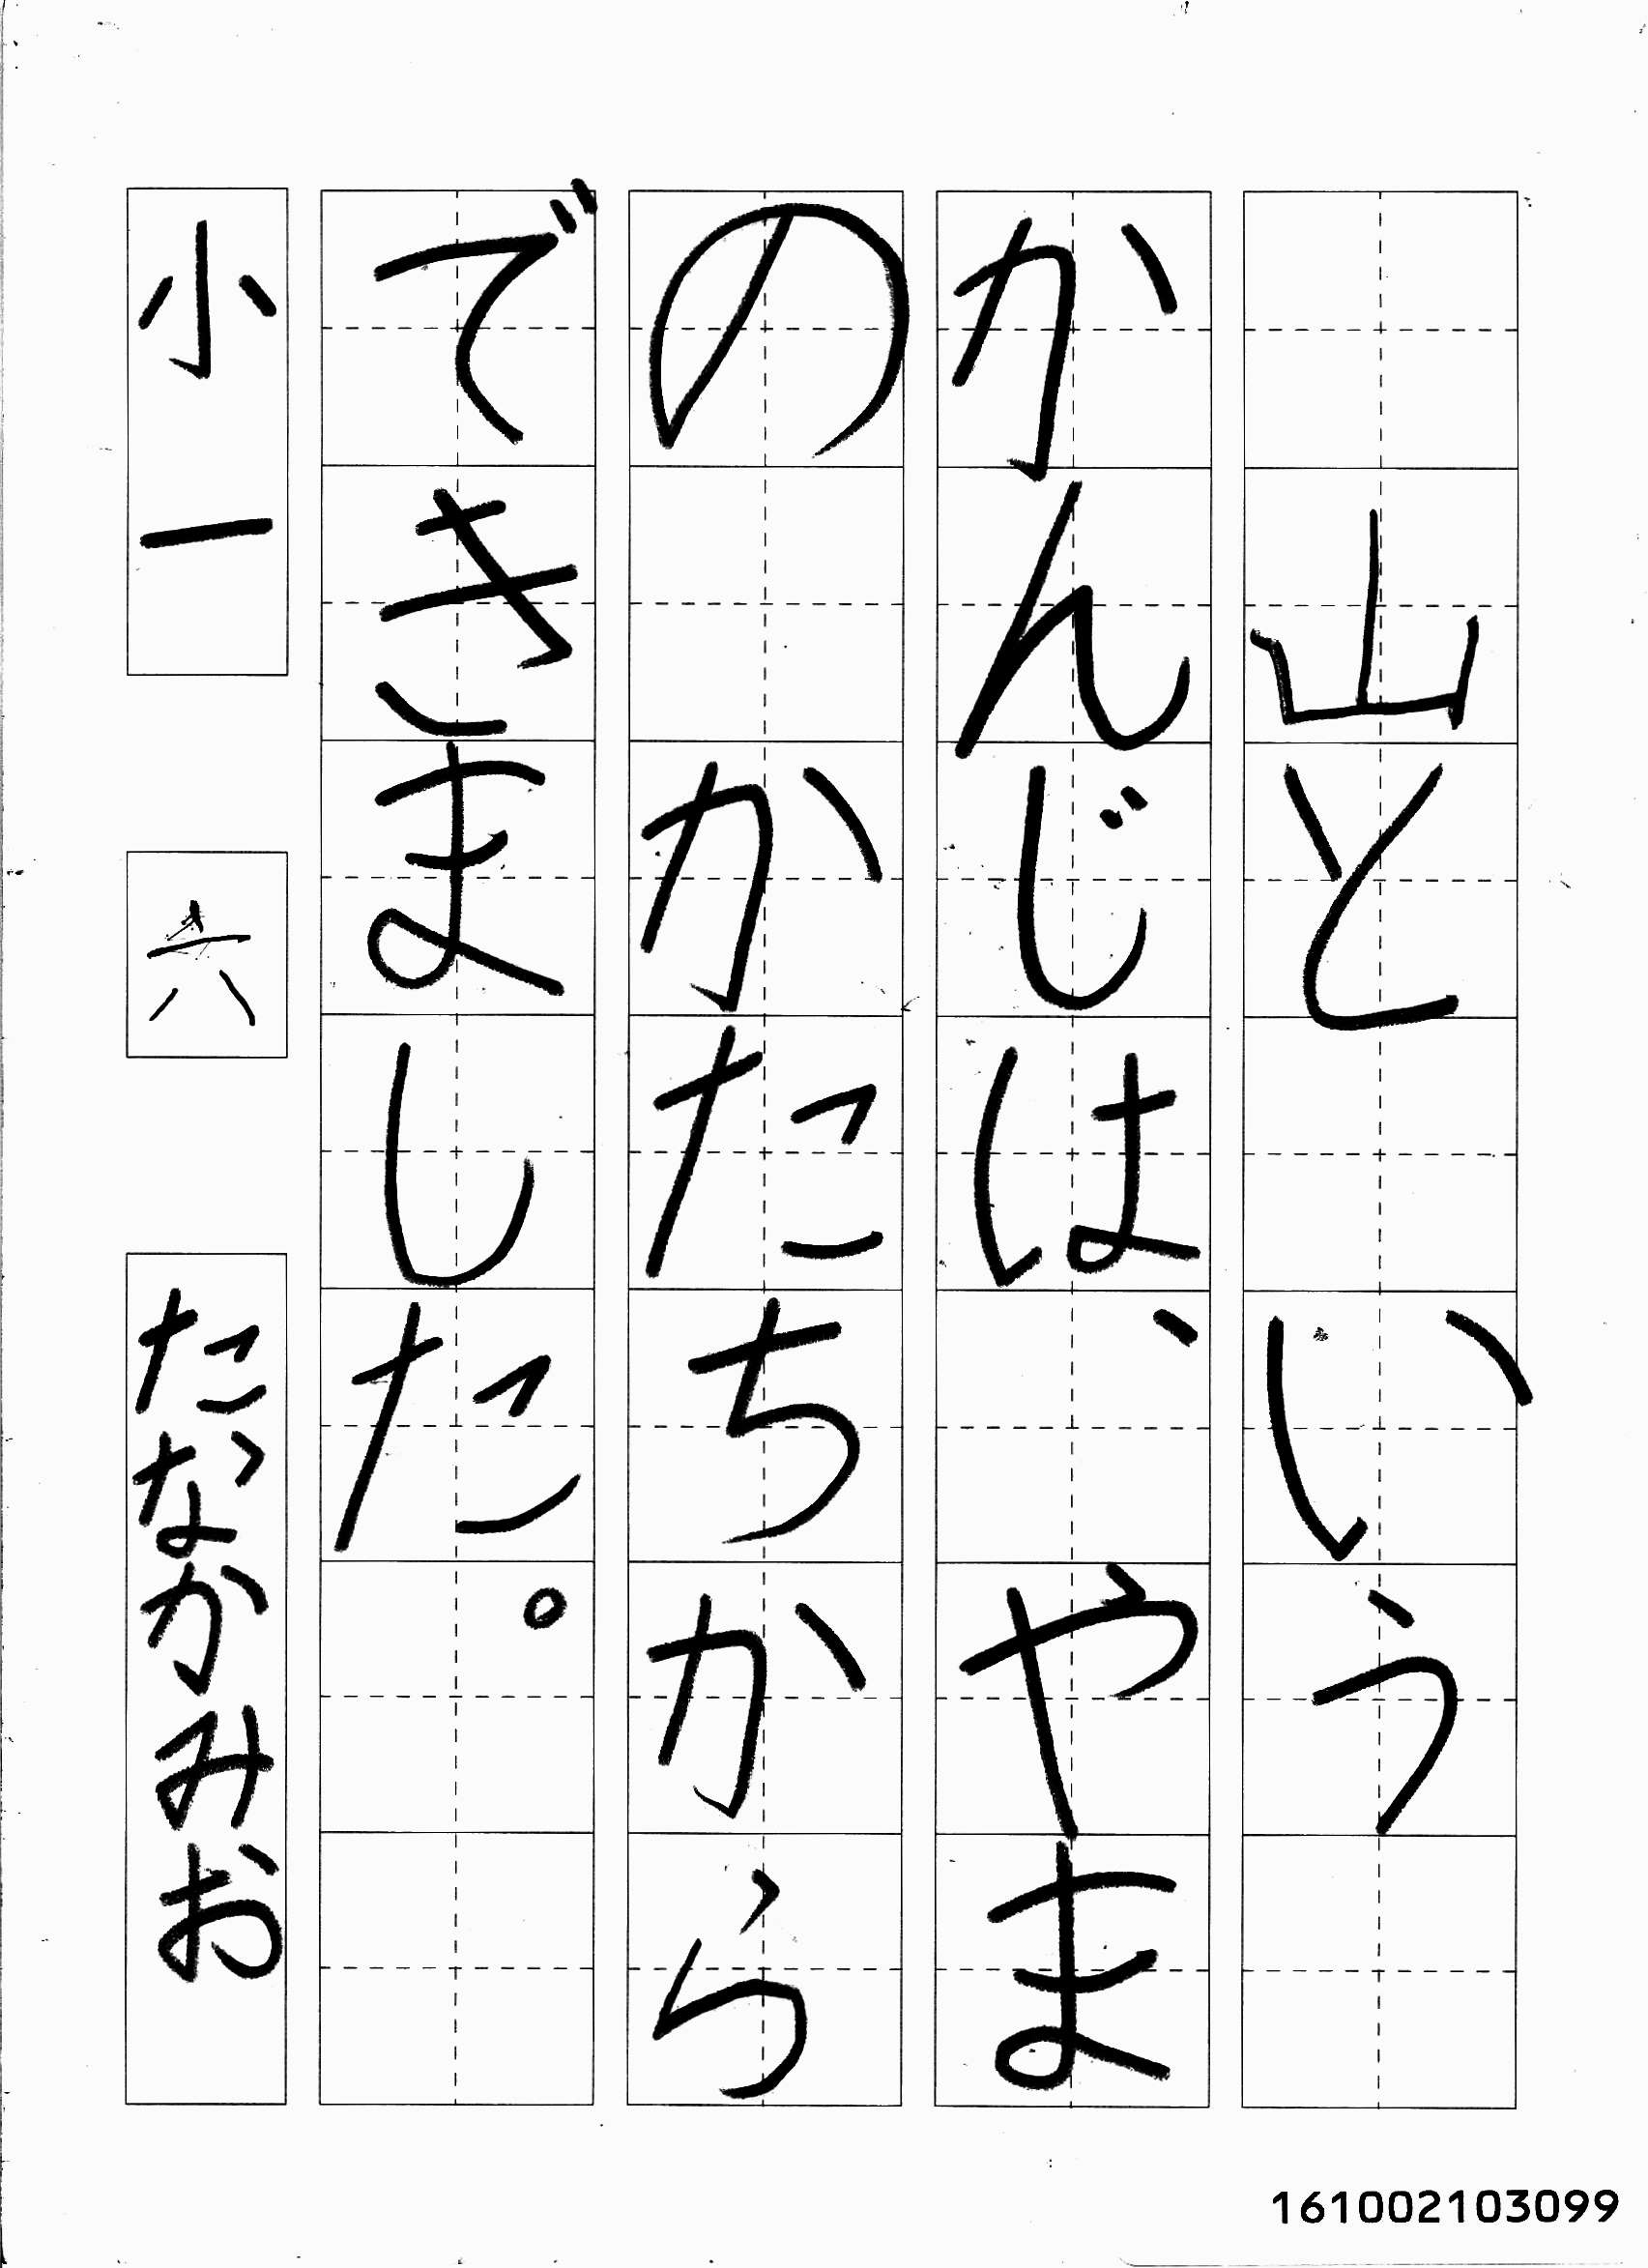 山と　いう
かんじは、やま
の　かたちから
できました。
小一
六
たなかみお
161002103099